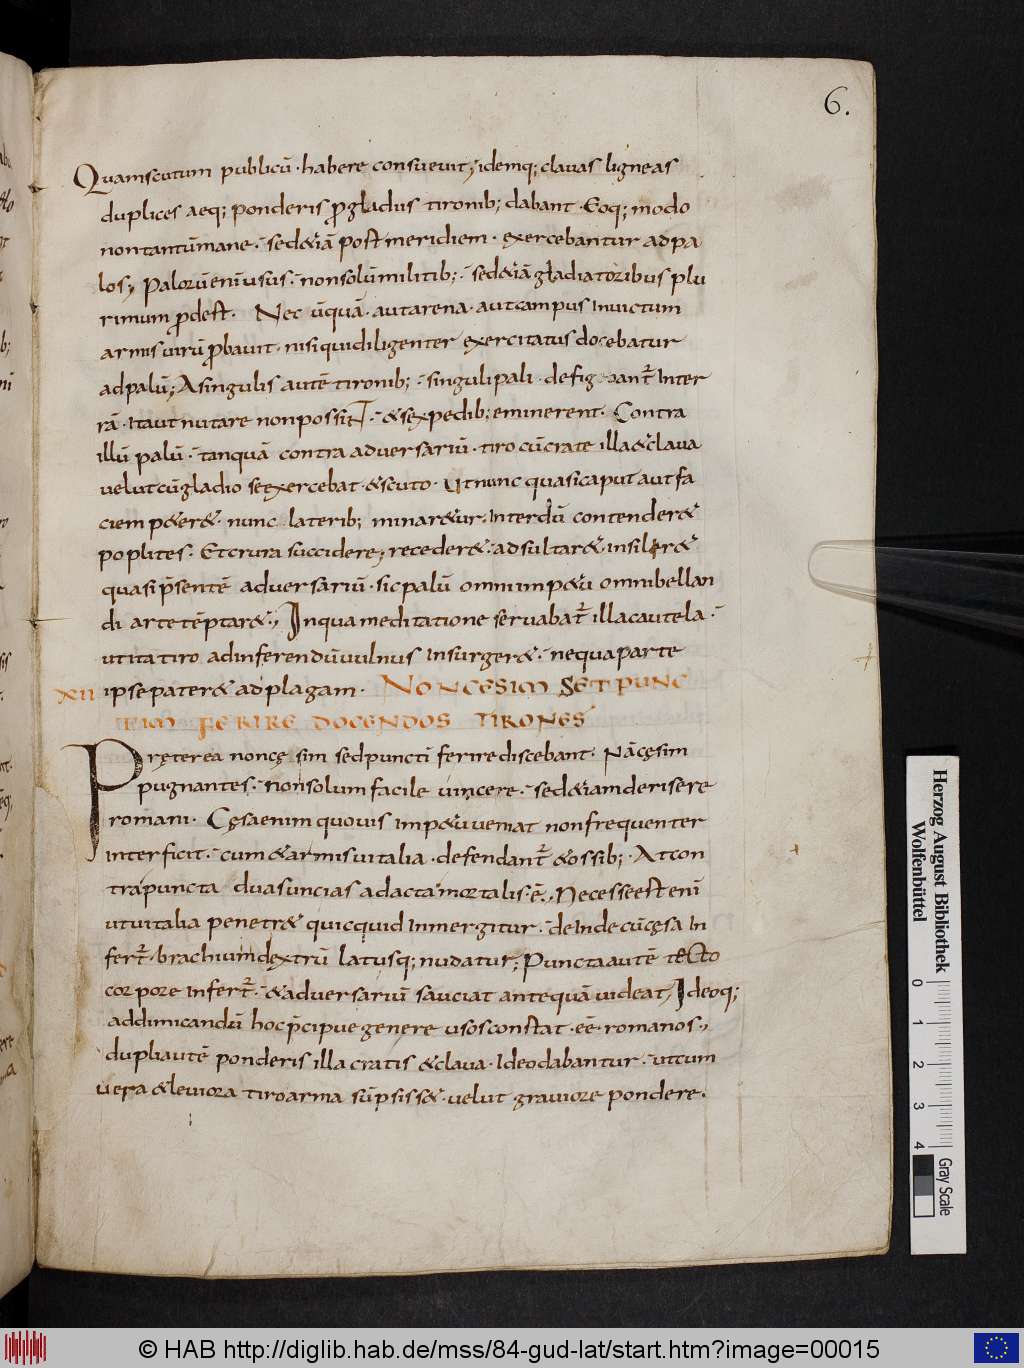 6.
Quamscutum publicū· habere consuevit; idemq; clavas ligneas
duplices aeq; ponderis ꝓgladiis tironib; dabant· Eoq; modo
nontantūmane· sed&iā postmeridiem· exercebantur adpa
los; Palorū enī usus· nonsolūmilitib; sed&iā gladiatoribus plu
rimum ꝓdest· Nec ūquā· autarena· autcampus invictum
armis virū ꝓbavit· nisi quidiligenter exercitatus docebatur
adpalū; Asingulis autē tironib; singulipali· defigebant᷑ inter
rā· itaut nutare nonpossit· &sexpedib; eminerent· Contra
illū palū· tanquā contra adversariū· tiro cūcrate illa&clava
velutcūgladio seexercebat &scuto· Utnunc quasicaput autfa
ciem p&er&· nunc laterib; minar&ur· Interdū contender&
poplites· Etcrura succidere; receder&· adsultar& insilir&
quasi p̄sentē adversariū· sicpalū omniimp&u omnibellan
di arte tēptar&; Inquameditatione servabat᷑ illacautela·
utitatiro adinferendūvulnus insurger&· nequaparte
ipsepater& adplagam· NONCESIM SETPUNC
XII
TIM FERIRE DOCENDOS TIRONES
Pręterea noncę sim sedpunctī ferirediscebant· Nācęsim
pugnantes· nonsolumfacile vincere· sed&iamderisere
romani· Cęsaenim quovis imp&uveniat nonfrequenter
interficit· cum&armisvitalia· defendant᷑ &ossib; Atcon
trapuncta duasuncias adacta mortalis·ē; Necesseest enī
utvitalia penetr& quicquid inmergitur· deindecūcęsa in
fert᷑· brachiumdextrū latusq; nudatur; Punctaautē tecto
corpore infert᷑· &adversariū sauciat antequā videat; Ideoq;
addimicandū hocp̄cipuegenere usosconstat· eē· romanos;
dupliautē ponderis illa cratis &clava· Ideodabantur· utcum
vera &leviora tiroarma sūpsiss&· velut graviore pondere.
Herzog August Bibliothek
Wolfenbüttel
0 1 2 3 4
Gray Scale
© HAB http://diglib.hab.de/mss/84-gud-lat/start.htm?image=00015